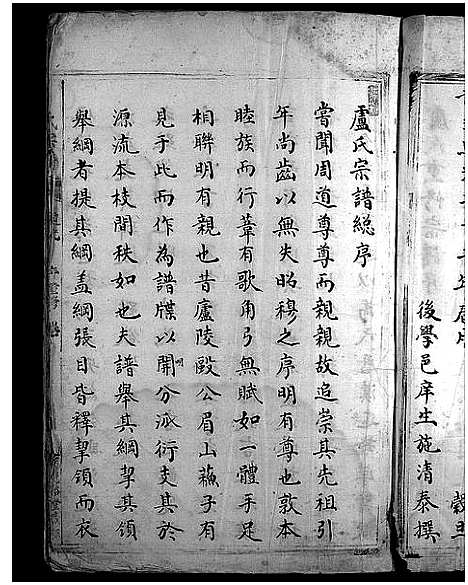 後學邑庠生施清泰撰
盧氏宗譜總序
嘗聞周道尊尊而親親故追崇其先祖引
年尚齒以無失昭穆之序明有尊也敦本
睦族而行葦有歌角弓無賦如一體手足
相聯明有親也昔廬陵歐公眉山蘇子有
見于此而作為譜牒以開分派衍支其於
源流本枝間秩如也夫譜舉其綱挈其領
舉綱者提其綱盖綱張目皆釋挈領而衣